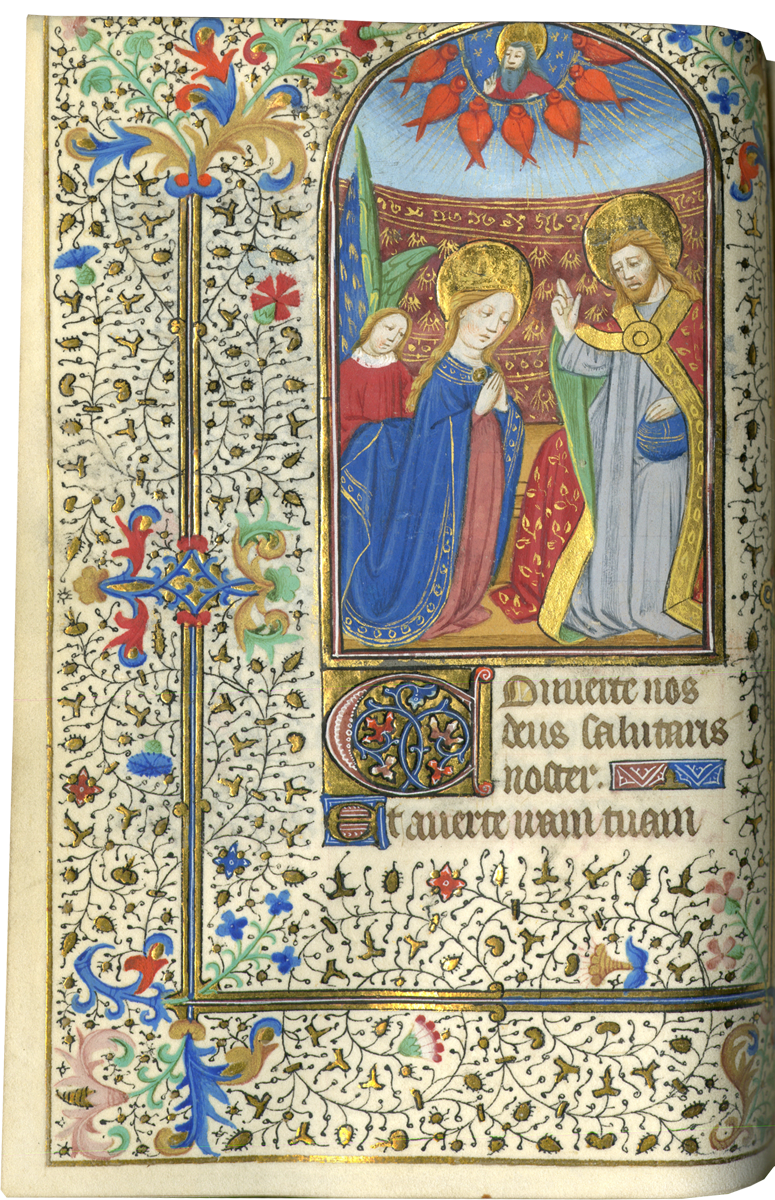 Converte nos
deus salutaris
noster.
Et averte iram tuam